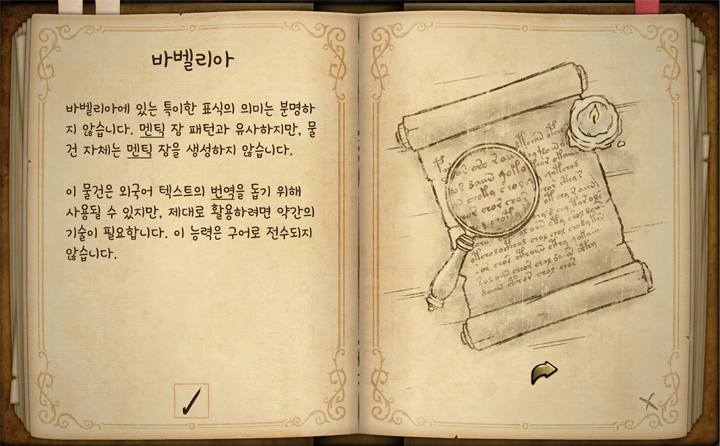 바벨리아
바벨리아에 있는 특이한 표식의 의미는 분명하
지 않습니다. 멘틱 장 패턴과 유사하지만, 물
건 자체는 멘틱 장을 생성하지 않습니다.
이 물건은 외국어 텍스트의 번역을 돕기 위해
사용될 수 있지만, 제대로 활용하려면 약간의
기술이 필요합니다. 이 능력은 구어로 전수되지
않습니다.